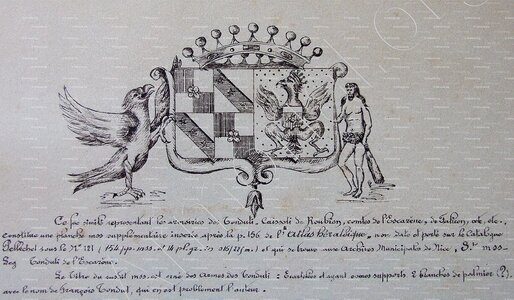 Ce fac similé représentant les armoiries des Tonduti, Caissoti de Roubion, comtes de l'Escarène, de Falicon, etc, etc.,
constitue une planche mss supplémentaire insérée après la p. 156 de l'"Atlas Héraldique" non daté et porté sur le Catalogue
Pellechet sous le N° 121 (154 pp. mss. et 16 pl. gr. in 215/) et qui se trouve aux Archives Municipales de Nice, mss
Tonduti de l'Escarène.
Le titre du susdit mss. est orné des Armes des Tonduti : Ecartelées et ayant comme supports 2 branches de palmier (?),
avec le nom de François Tondut, qui en est problement l'auteur.